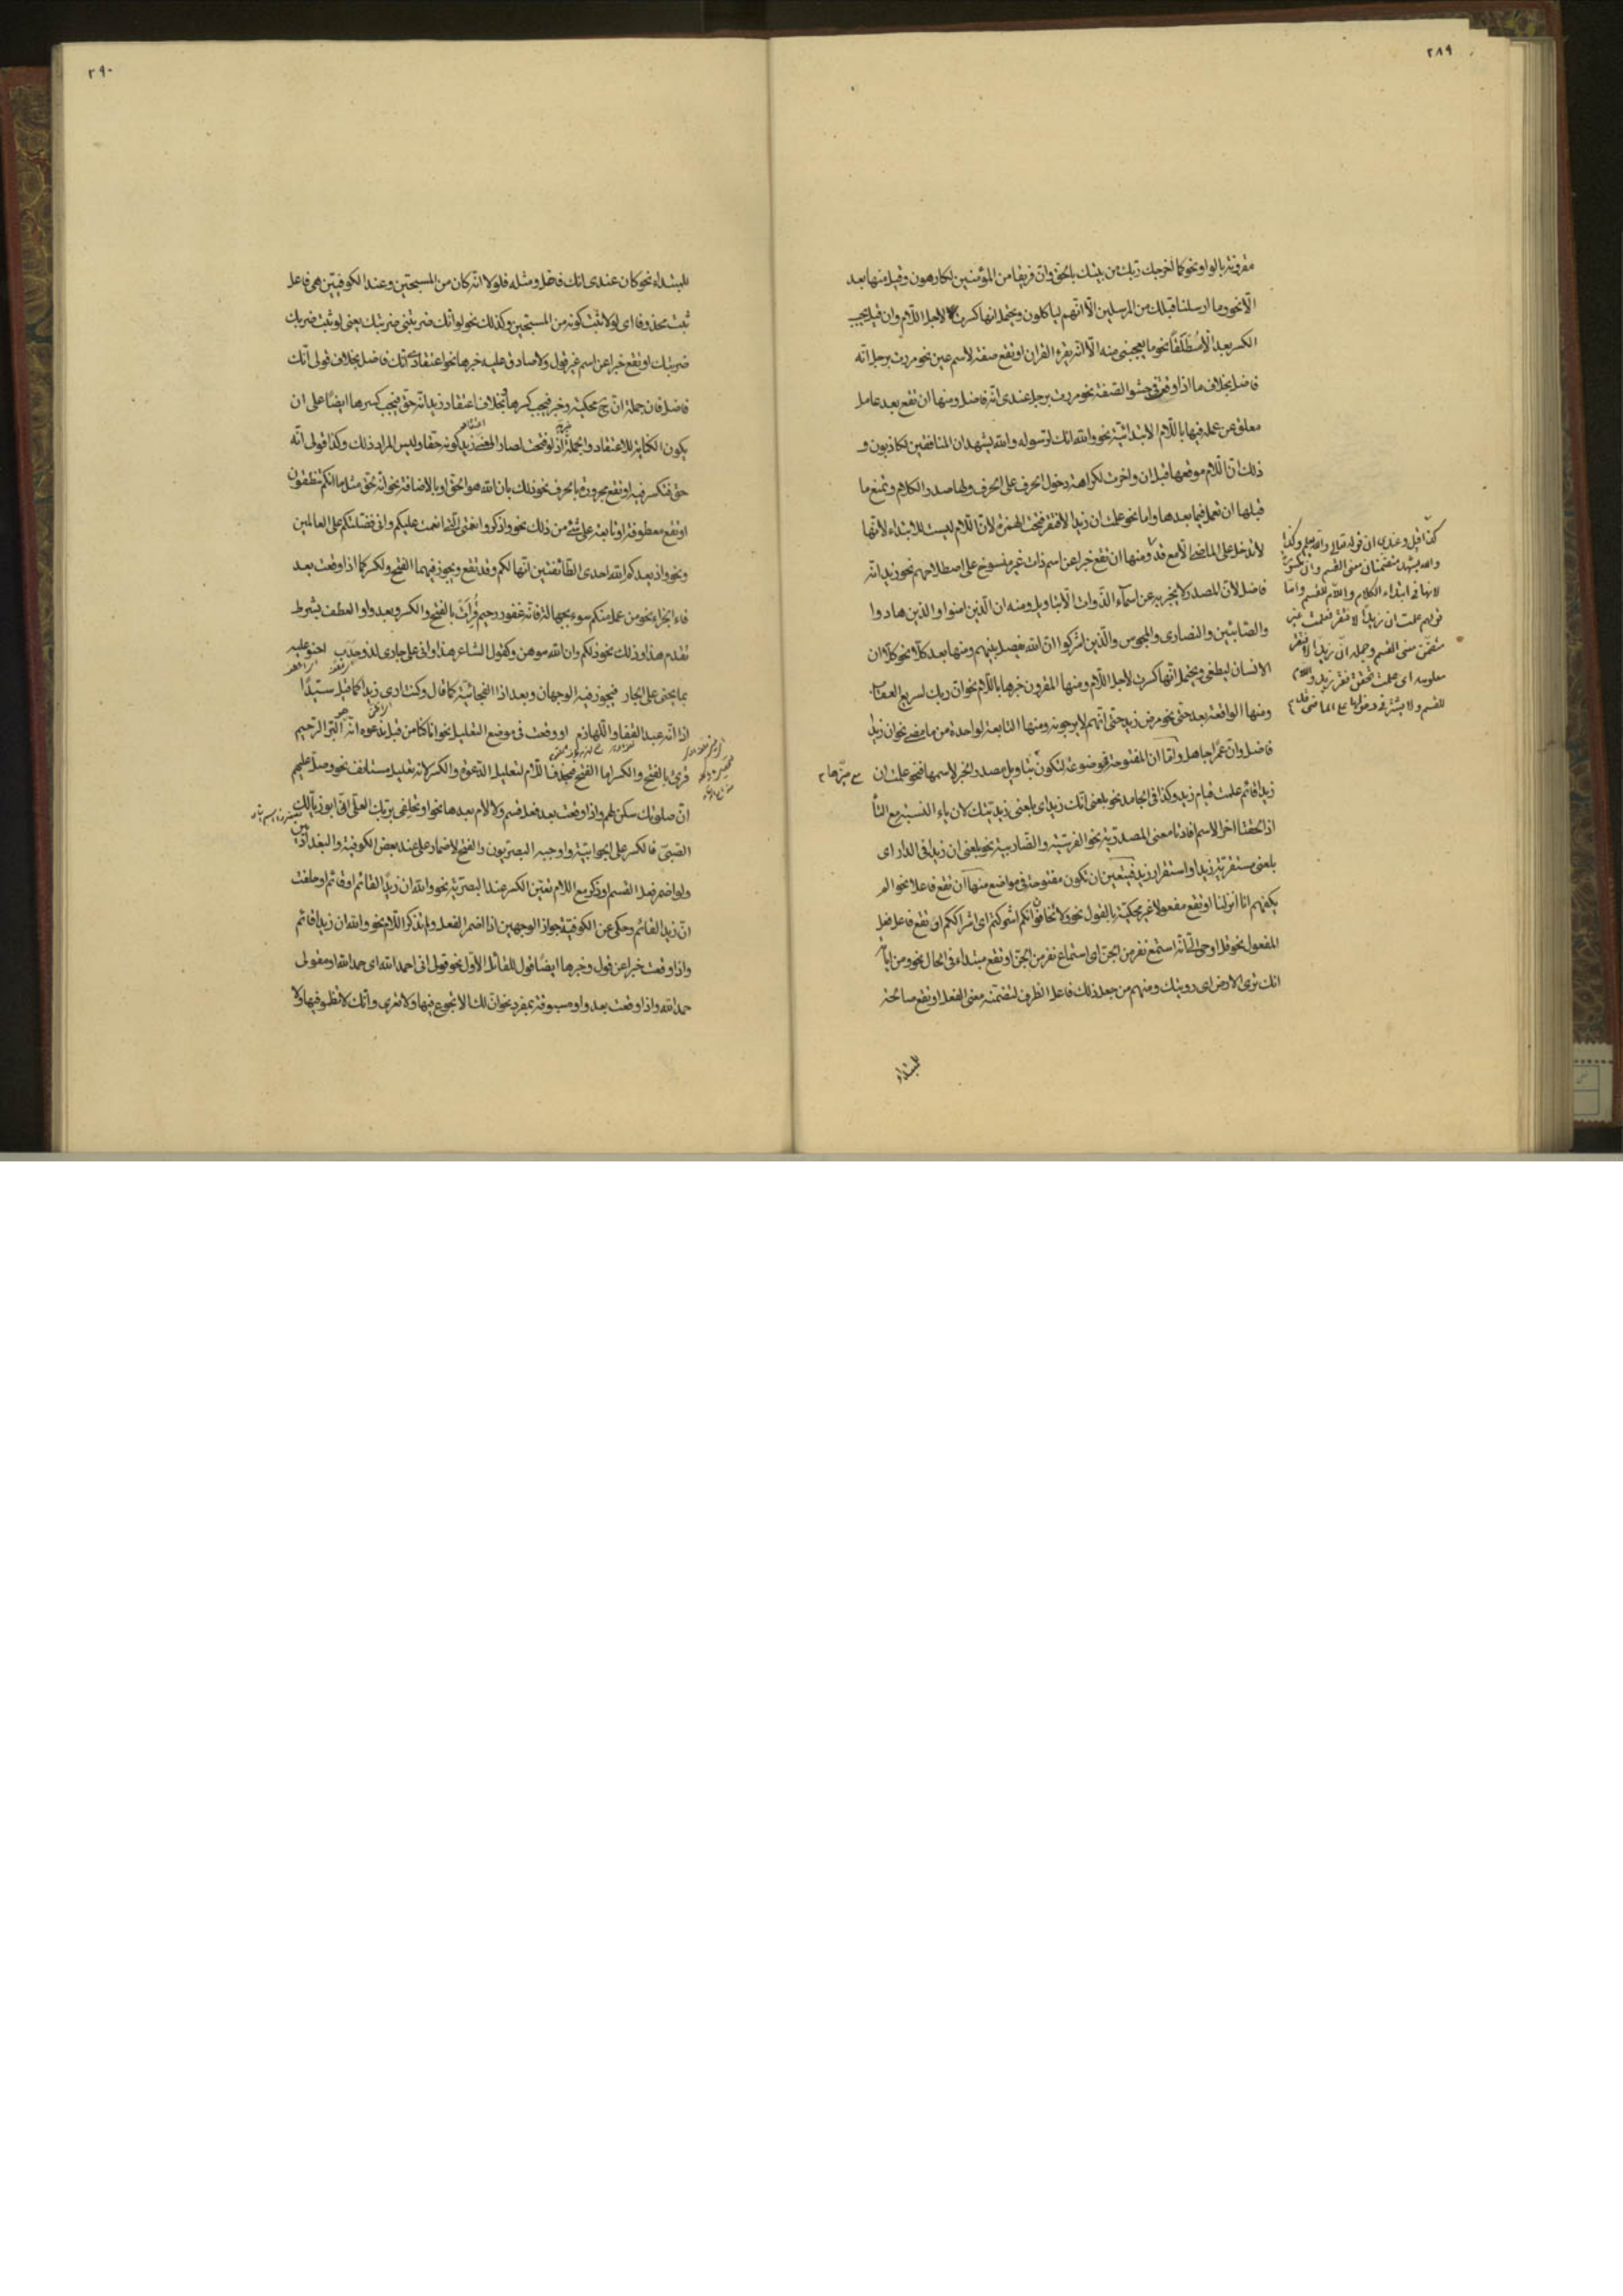 ٢٨٩
مقرونة بالواو نحو كما اخرجك ربك من بيتك بالحق وان فريقا من المؤمنين لكارهون وقيل منها بعد
الّا نحو وما ارسلنا قبلك من المرسلين الّا انّهم ليأكلون ويحتمل انها كسرت لاجل اللّام وان قيل يجب
الكسر بعد الّا مُطْلَقًا نحو ما يعجبنى منه الّا انّه يقرء القران او تقع صفة لاسم عين نحو مررت برجل انّه
فاضل بخلاف ما اذا وقعت فى حشو الصّفة نحو مررت برجل عندى انّه فاضل ومنها ان تقع بعد عامل
معلق عن عمله فيها باللّام الابتدائيّة نحو والله انك لرسوله والله يشهد ان المنافقين لكاذبون و
ذلك انّ اللّام موضعها قبل ان واخرت لكراهة دخول الحرف على الحرف ولها صدر الكلام وتمنع ما
قبلها ان تعمل فيما بعدها واما نحو علمت ان زيدا لافتقر فتحت الهمزة لانّ اللّام ليست للابتداء لانّها
لا تدخل على الماضى الّا مع قد ومنها ان تقع خبرا عن اسم ذات غير منسوخ على اصطلاحهم نحو زيد انّه
فاضل لانّ المصدر لا يخبر به عن اسمآء الذّوات الّا بتاويل ومنه ان الّذين امنوا والذين هادوا
والصّابئين والنصارى والمجوس والّذين اشركوا انّ الله يفصل بينهم ومنها بعد كلّا نحو كلّا ان
الانسان ليطغى ويحتمل انّها كسرت لاجل اللّام ومنها المقرون خبرها باللّام نحو ان ربك لسريع العقاب
ومنها الواقعة بعد حتى نحو مرض زيد حتى انّهم لا يرجونه ومنها التابعة لواحدة من ما مضى نحو ان زيدا
فاضل وانّ عمرًا جاهل وامّا ان المفتوحة فموضوعة لتكون بتاويل مصدر الخبر لاسمها فنحو علمت ان
زيدا قائم علمت قيام زيد وكذا فى الجامد نحو بلغنى انّك زيد اى بلغنى زيديّتك لان ياء النسبة مع التّا
اذا لحقتا اخر الاسم افادتا معنى المصدريّة نحو الفرسيّة والضّاربيّة نحو بلغنى ان زيدا فى الدار اى
بلغنى مستقريّة زيد او استقرار زيد فيتعين ان تكون مفتوحة فى مواضع منها ان تقع فاعلا نحو الم
يكفهم انا انزلنا او تقع مفعولا غير محكيّة بالقول نحو ولا تخافون انّكم اشركتم اى اشراككم او تقع فاعل فعل
المفعول نحو قل اوحى الىّ انّه استمع نفر من الجنّ اى استماع نفر من الجنّ او تقع مبتداء فى الحال نحو ومن اياته
انك ترى الارض اى رويتك ومنهم من جعل ذلك فاعل الظرف لتضمّنه معنى الفعل او تقع صالحة
للمبتداء
كذا قيل وعندى ان قوله تعالى والله يعلم وكذا
والله يشهد متضمنان معنى القسم وان مكسورة
لانها فى ابتداء الكلام واللّام للقسم واما
قولهم علمت ان زيدا لافتقر فعلمت غير
متضمن معنى القسم وجملة انّ زيدا لافتقر
معلومه اى علمت تحقق فقر زيد واللام
للقسم ولا يشترط دخولها على الماضى قد
٢٩٠
للمبتداء نحو كان عندى انك فاضل ومثله فلولا انّه كان من المسبحين وعند الكوفيّين هى فاعل
ثبت محذوفا اى لولا ثبت كونه من المسبّحين وكذلك نحو لو انّك ضربتنى ضربتك يعنى لو ثبت ضربك
ضربتك او تقع خبرا عن اسم غير قول ولا صادق عليه خبرها نحو اعتقادى انّك فاضل بخلاف قولى انّك
فاضل فان جملة انّ ح محكية وخبر فيجب كسرها بخلاف اعتقاد زيد انّه حق فيجب كسرها ايضًا على ان
يكون الكناية للاعتقاد والجملة خبره اذ لو فتحت لصار المعنى اعتقاد زيد كونه حقا وليس المراد ذلك وكذا قولى انّه
حق فتكسر فيه او تقع مجرورة بالحرف نحو ذلك بان الله هو الحق او بالاضافة نحو انّه لحق مثل ما انكم تنطقون
او تقع معطوفة او تابعة على شئ من ذلك نحو واذكروا نعمتى الّتى انعمت عليكم وانى فضلتكم على العالمين
ونحو واذ يعدكم الله احدى الطّائفتين انّها لكم وقد تقع ويجوز فيهما الفتح والكسر كما اذا وقعت بعد
فاء الجزاء نحو من عمل منكم سوء بجهالة فانّه غفور رحيم قُرِأَتْ بالفتح والكسر وبعد واو العطف بشرط
تقدم هذا او ذلك نحو ذلكم وان الله موهن وكقول الشاعر هذا وانى على جارى لذو حَدَبٍ احنو عليه
بما يحنى على الجار فيجوز فيه الوجهان وبعد اذا الفجائيّة كما قال وكنت ارى زيدا كما قيل سيّدًا
اذا انّه عبد القفا واللّهازم او وقعت فى موضع التعليل نحو انا كنا من قبل ندعوه انّه البرّ الرّحيم
قرئ بالفتح والكسر اما الفتح فبحذف اللّام لتعليل الدّعوة والكسر لانّه تعليل مستانف نحو وصلّ عليهم
انّ صلوتك سكن لهم واذا وقعت بعد فعل قسم ولا لام بعدها نحو او تحلفى بربّك العلىّ انّى ابو ذيّالك
الصّبىّ فالكسر على الجوابيّة واوجبه البصريون والفتح لاضمار على عند بعض الكوفية والبغداديين
ولو اضمر فعل القسم او ذكر مع اللام تعيّن الكسر عند البصريّة نحو والله ان زيدًا لقائم او قائم او حلفت
انّ زيدا لقائم وحكى عن الكوفيّة جواز الوجهين اذا اضمر الفعل ولم تذكر اللّام نحو والله ان زيدا قائم
واذا وقعت خبرا عن قول وخبرها ايضًا قول للقائل الاوّل نحو قولى انى احمد الله اى حمد الله او مقولى
حمد الله واذا وقعت بعد واو مسبوقة بمفرد نحو انّ لك الا تجوع فيها ولا تعرى وانّك لا تظمؤ فيها ولا